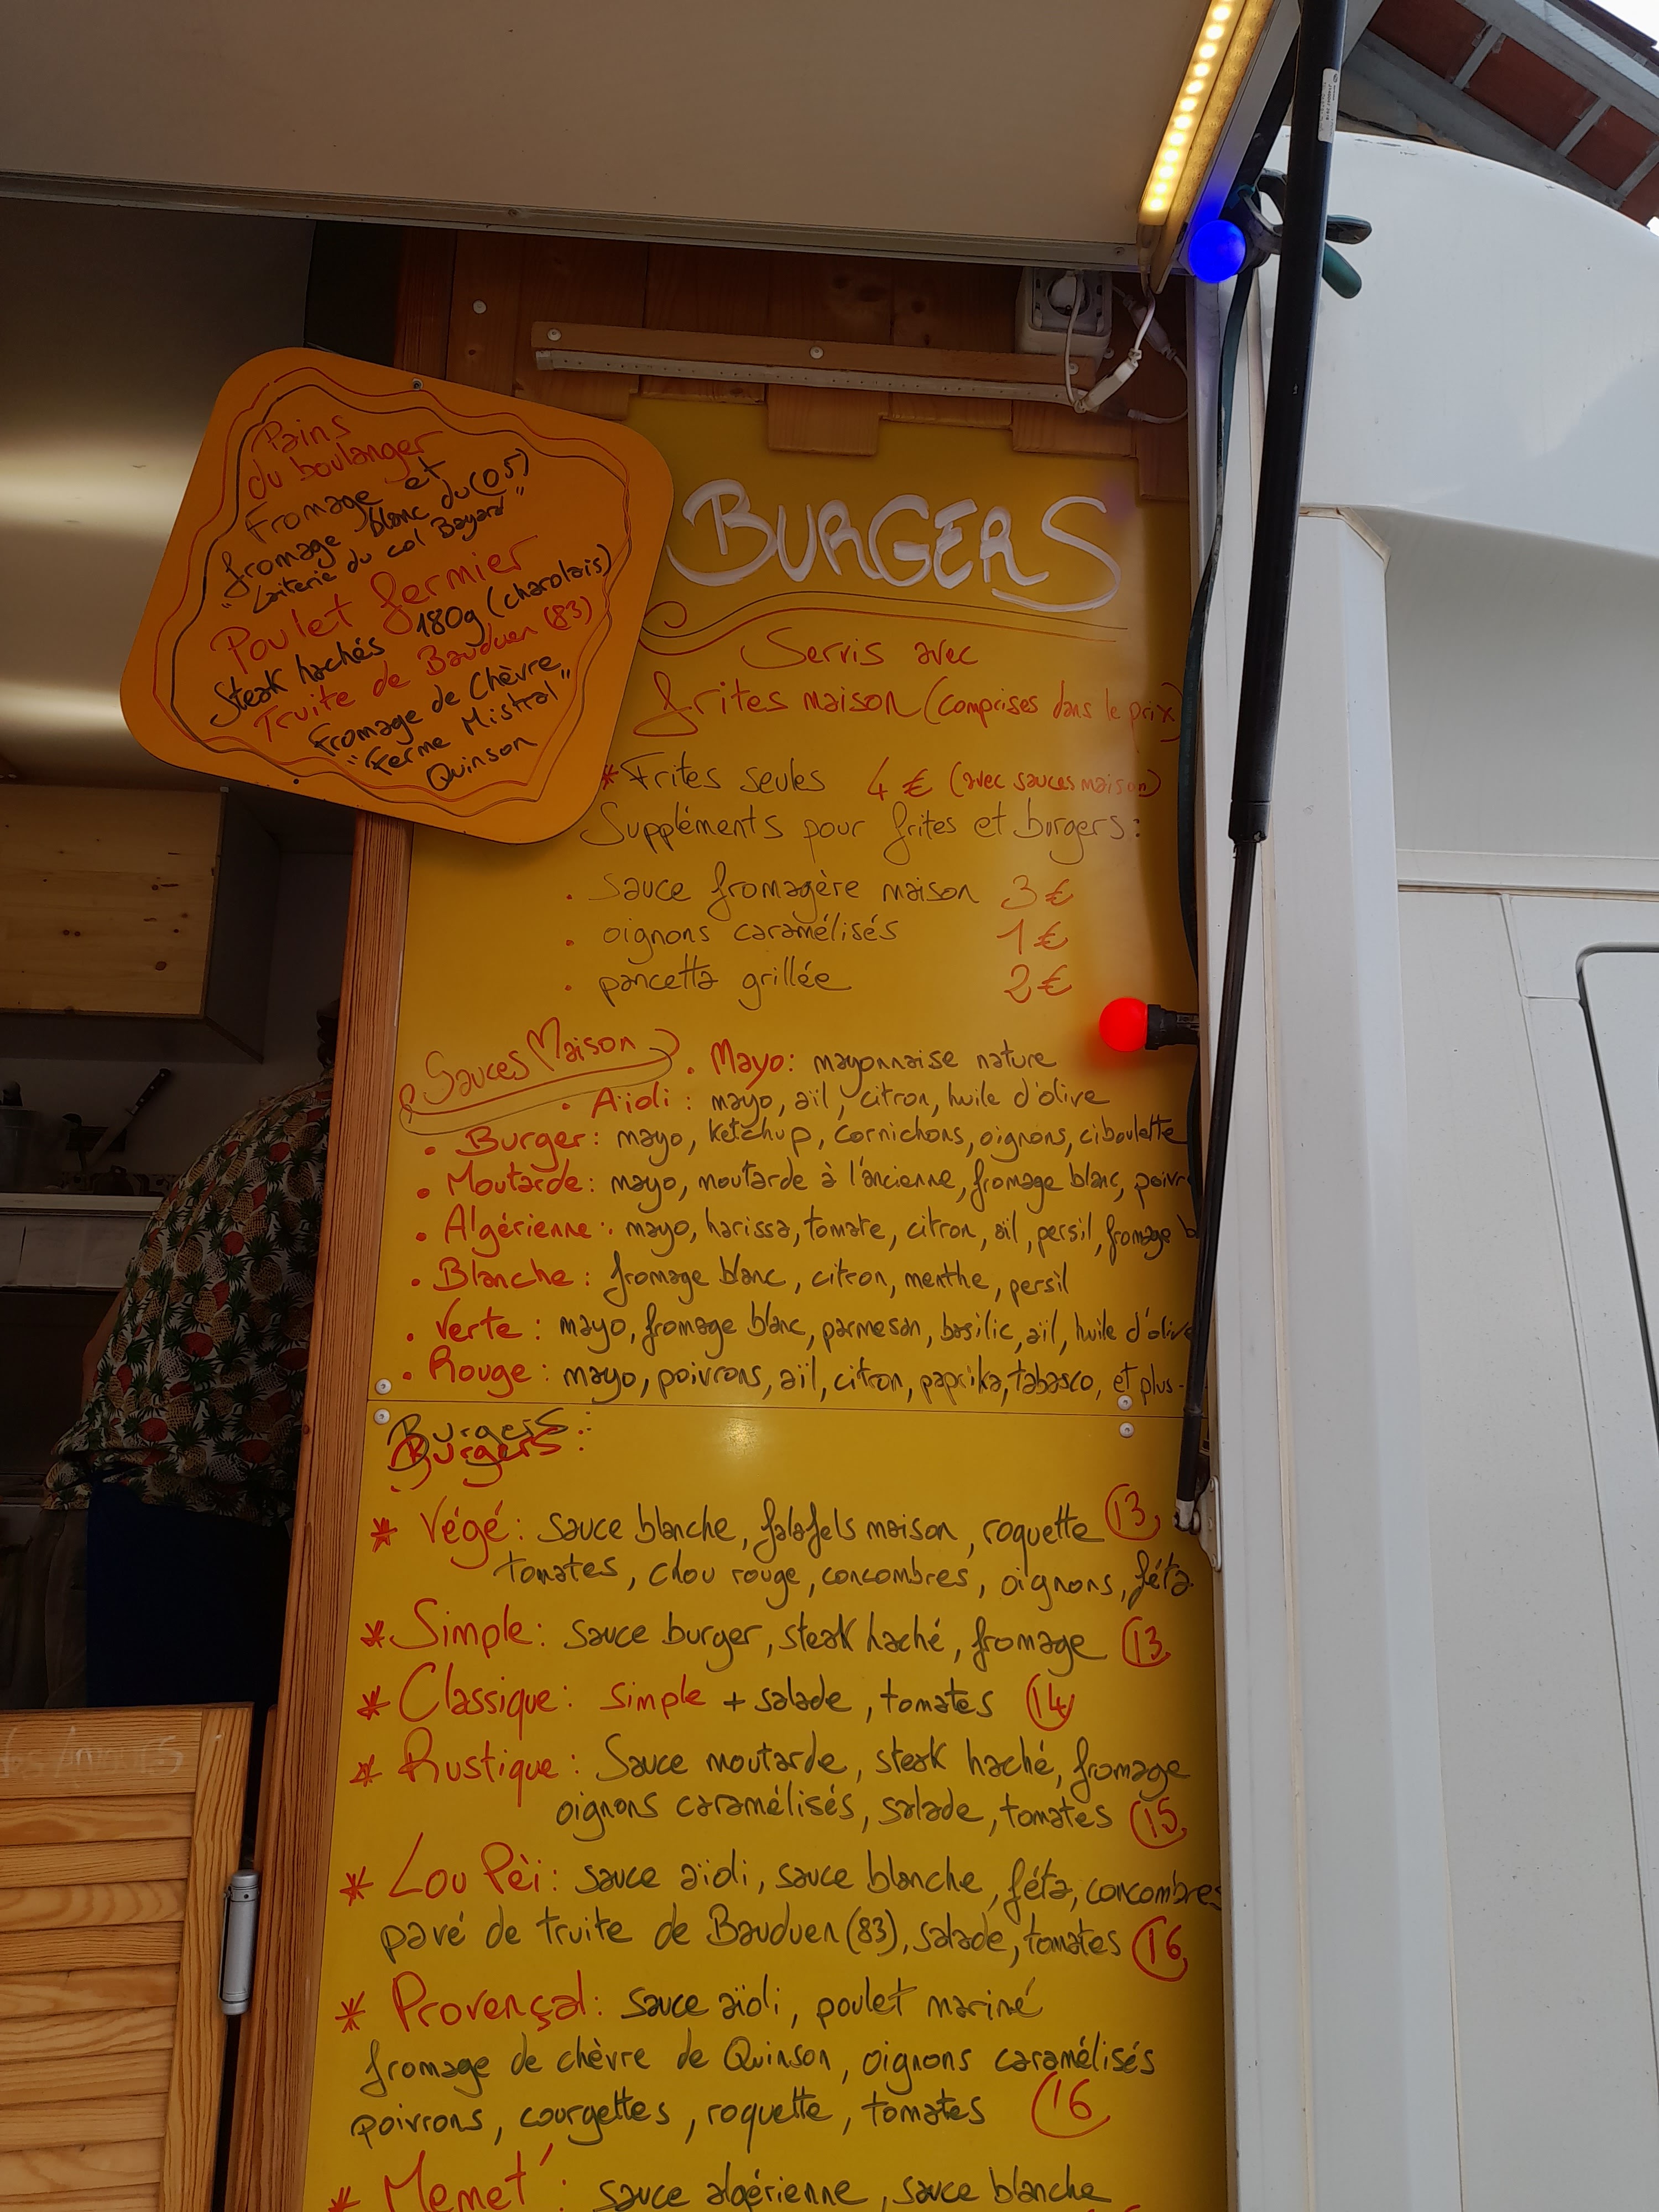 Pains
du boulanger
Fromage et
fromage blanc du (05)
"Laiterie du col Bayard"
Poulet fermier
Steak hachés 180g (charolais)
Truite de Bauduen (83)
Fromage de Chèvre
"Ferme Mistral"
Quinson
BURGERS
Servis avec
frites maison (comprises dans le prix)
* Frites seules 4 € (avec sauces maison)
Suppléments pour frites et burgers :
. sauce fromagère maison 3 €
. oignons caramélisés 1 €
. pancetta grillée 2 €
Sauces Maison
. Mayo : mayonnaise nature
. Aïoli : mayo, aïl, citron, huile d'olive
. Burger : mayo, ketchup, cornichons, oignons, ciboulette
. Moutarde : mayo, moutarde à l'ancienne, fromage blanc, poivr
. Algérienne : mayo, harissa, tomate, citron, aïl, persil, fromage b
. Blanche : fromage blanc, citron, menthe, persil
. Verte : mayo, fromage blanc, parmesan, basilic, aïl, huile d'olive
. Rouge : mayo, poivrons, aïl, citron, paprika, tabasco, et plus
Burgers :
Burgers :
* Végé : sauce blanche, falafels maison, roquette 13
tomates, chou rouge, concombres, oignons, féta
* Simple : sauce burger, steak haché, fromage 13
* Classique : simple + salade, tomates 14
* Rustique : Sauce moutarde, steak haché, fromage
oignons caramélisés, salade, tomates 15
* Lou Pèi : sauce aïoli, sauce blanche, féta, concombres
pavé de truite de Bauduen (83), salade, tomates 16
* Provençal : sauce aïoli, poulet mariné
fromage de chèvre de Quinson, oignons caramélisés
poivrons, courgettes, roquette, tomates 16
* Memet' : sauce algérienne, sauce blanche